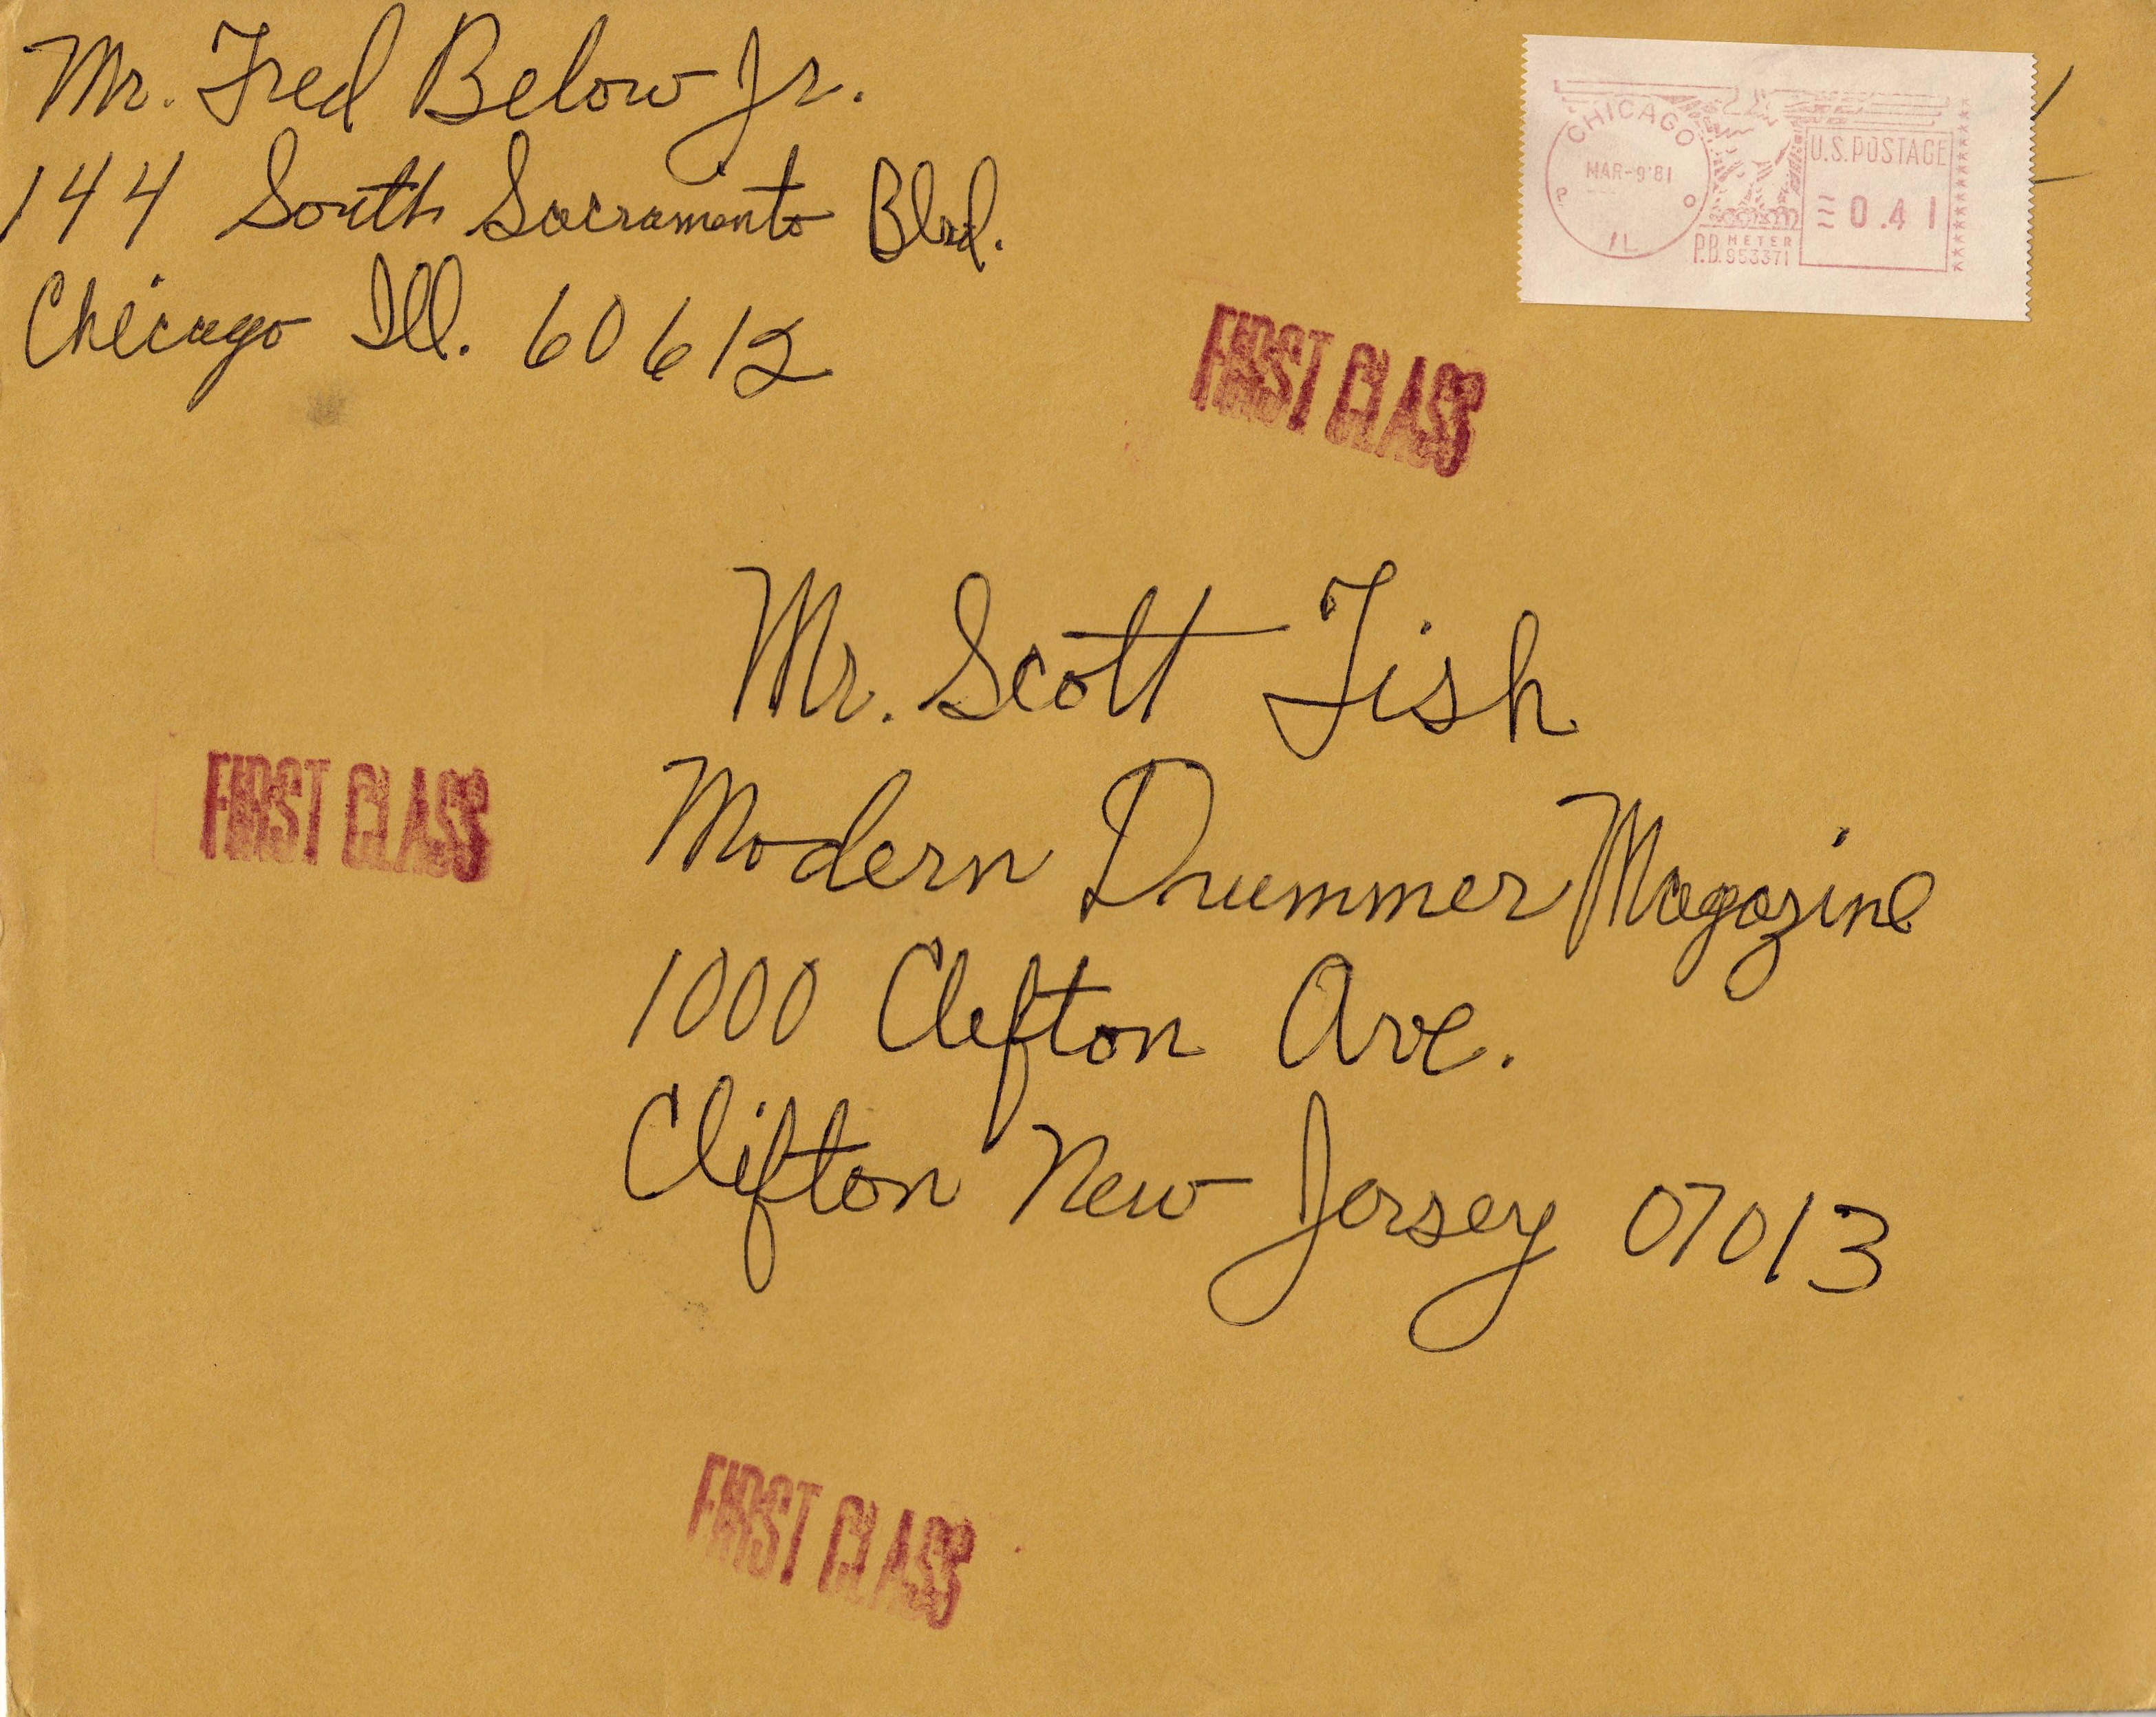 Mr. Fred Below Jr.
144 South Sacramento Blvd.
Chicago Ill. 60612
CHICAGO
MAR-9'81
P O
IL
U.S. POSTAGE
0.41
P.B. METER
953371
FIRST CLASS
Mr. Scott Fish
FIRST CLASS
Modern Drummer Magazine
1000 Clefton Ave.
Clifton New Jersey 07013
FIRST CLASS